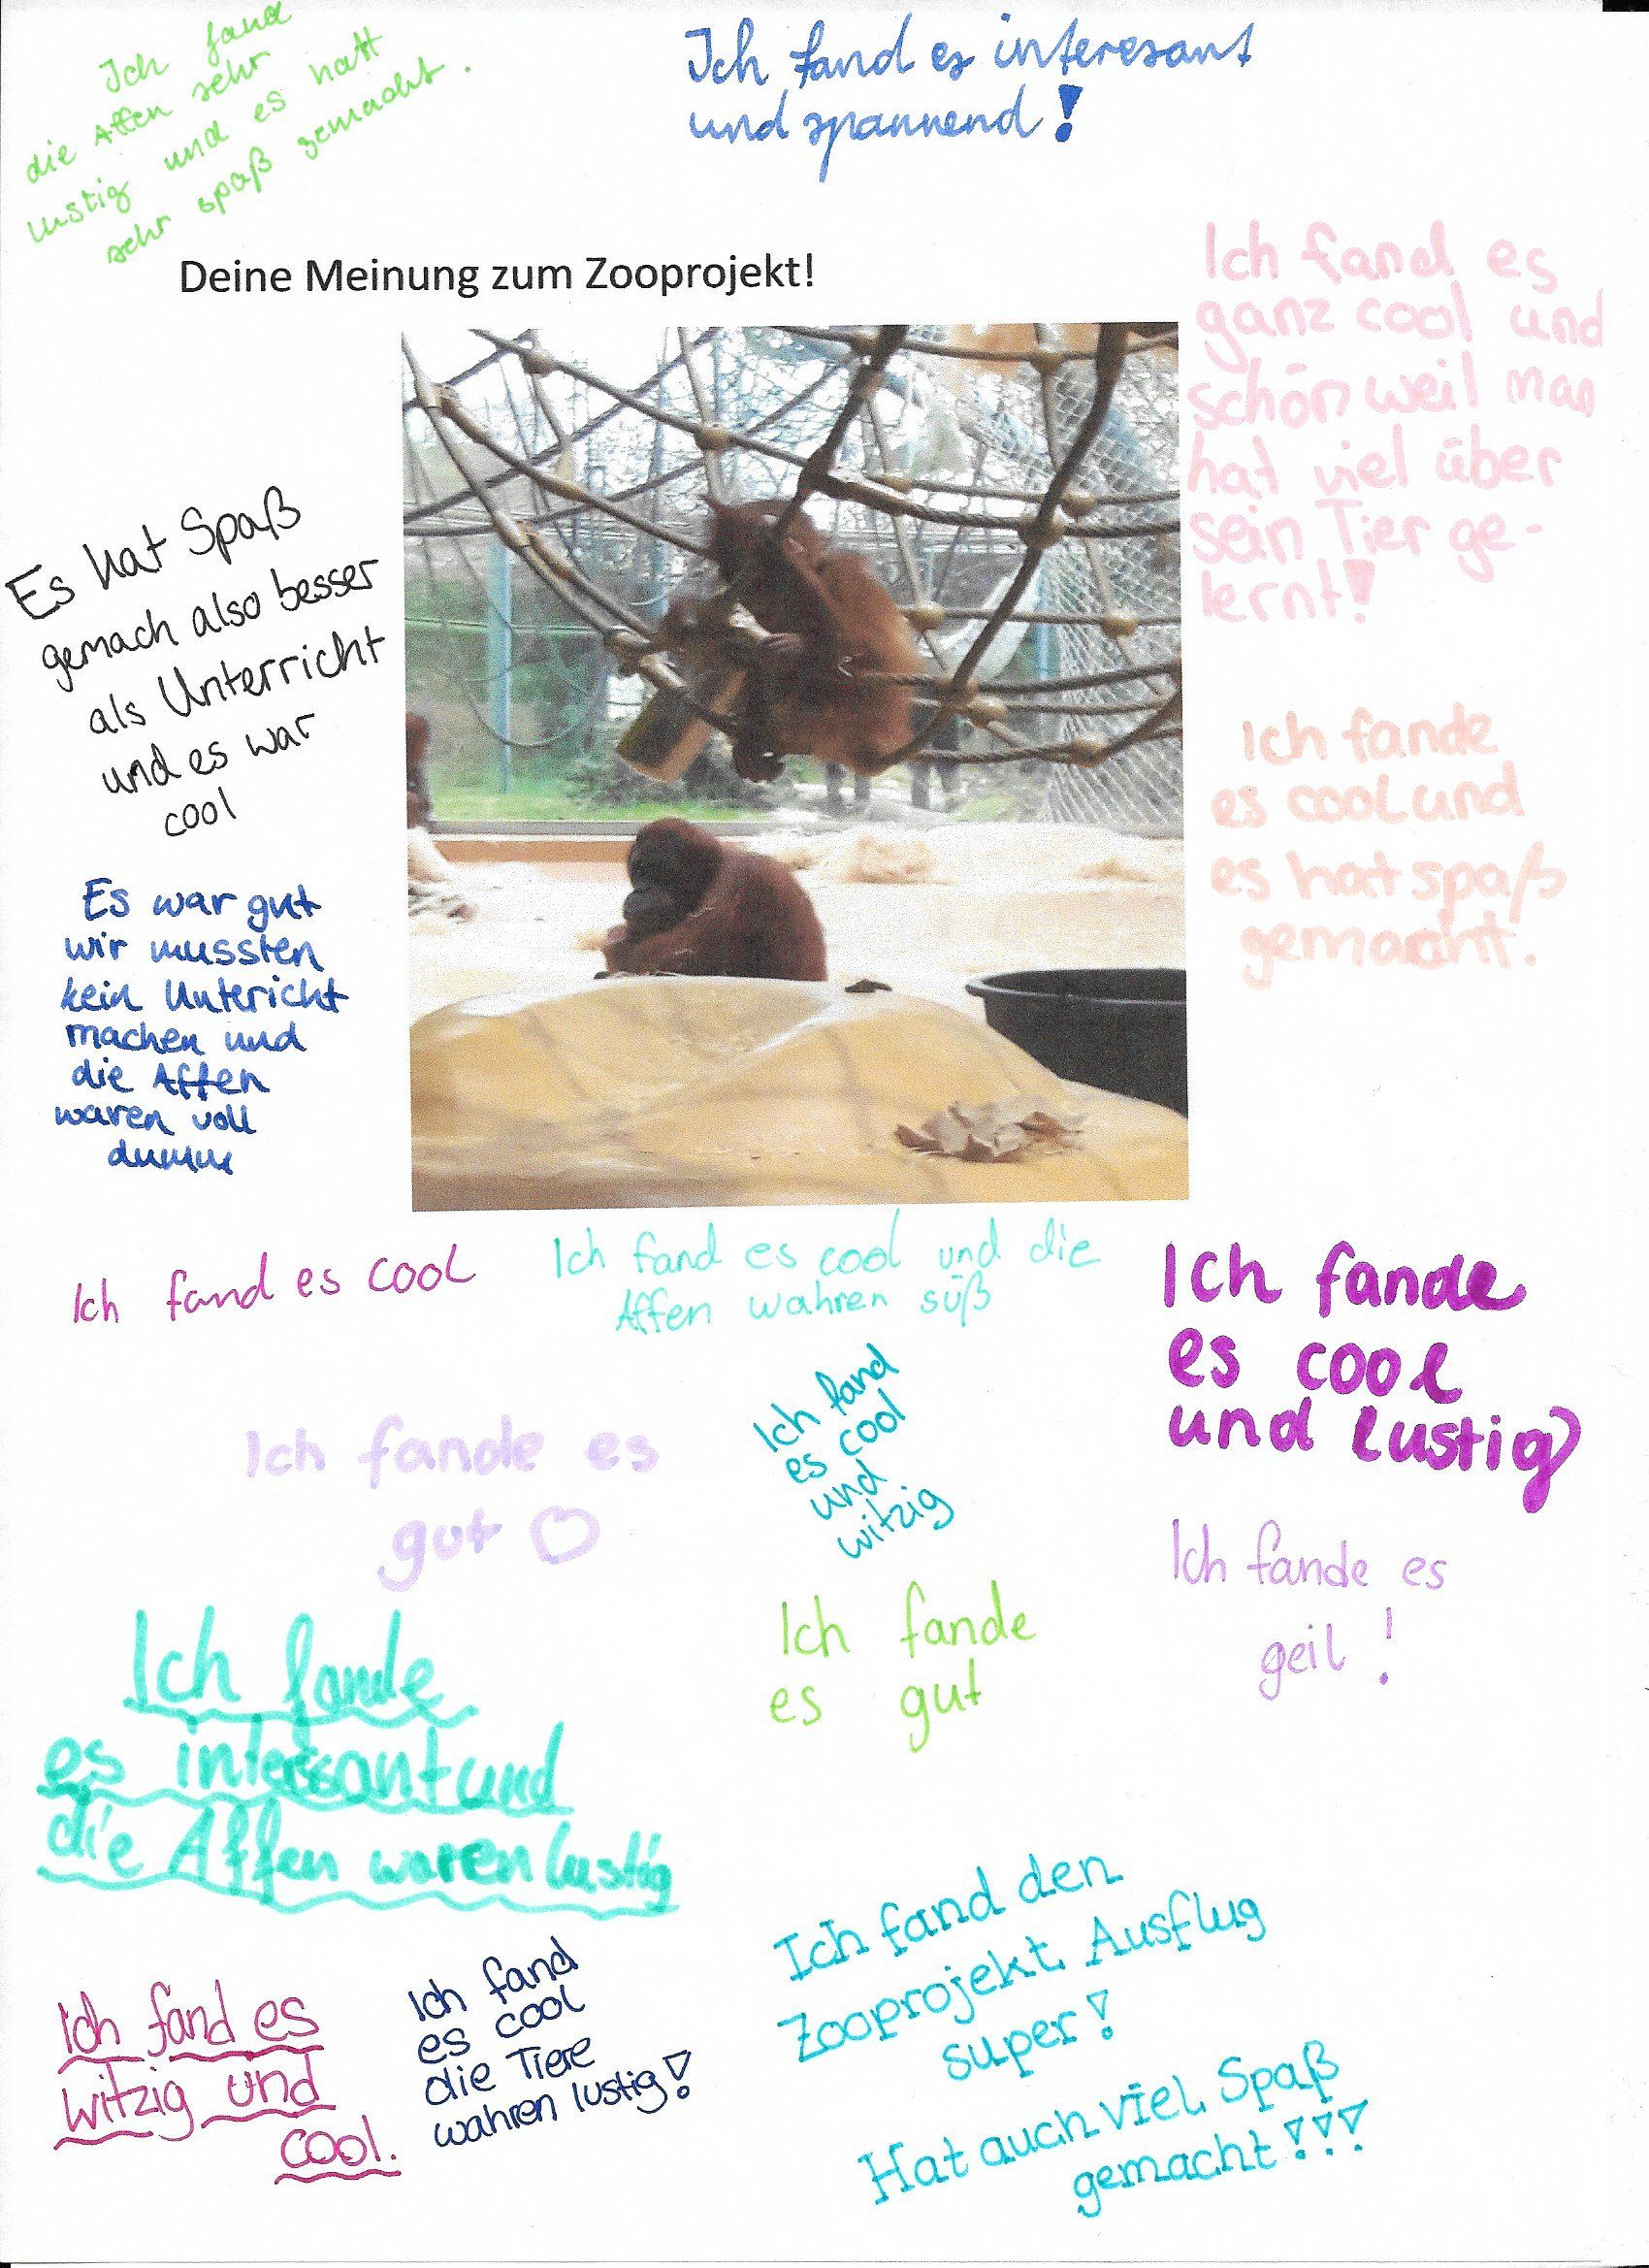 Ich fand
die Affen sehr
lustig und es hatt
sehr spaß gemacht.
Ich fand es interesant
und spannend!
Deine Meinung zum Zooprojekt!
Ich fand es
ganz cool und
schön weil man
hat viel über
sein Tier ge-
lernt!
Es hat Spaß
gemach also besser
als Unterricht
und es war
cool
Ich fande
es cool und
es hat spaß
gemacht.
Es war gut
wir mussten
kein Untericht
machen und
die Affen
waren voll
dumm
Ich fand es cool
Ich fand es cool und die
Affen wahren süß
Ich fande
es cool
und lustig
Ich fand
es cool
und
witzig
Ich fande es
gut
Ich fande es
geil!
Ich fande
es gut
Ich fande
es interssant und
die Affen waren lustig
Ich fand den
Zooprojekt Ausflug
super!
Hat auch viel Spaß
gemacht!!!
Ich fand es
witzig und
cool.
Ich fand
es cool
die Tiere
wahren lustig!